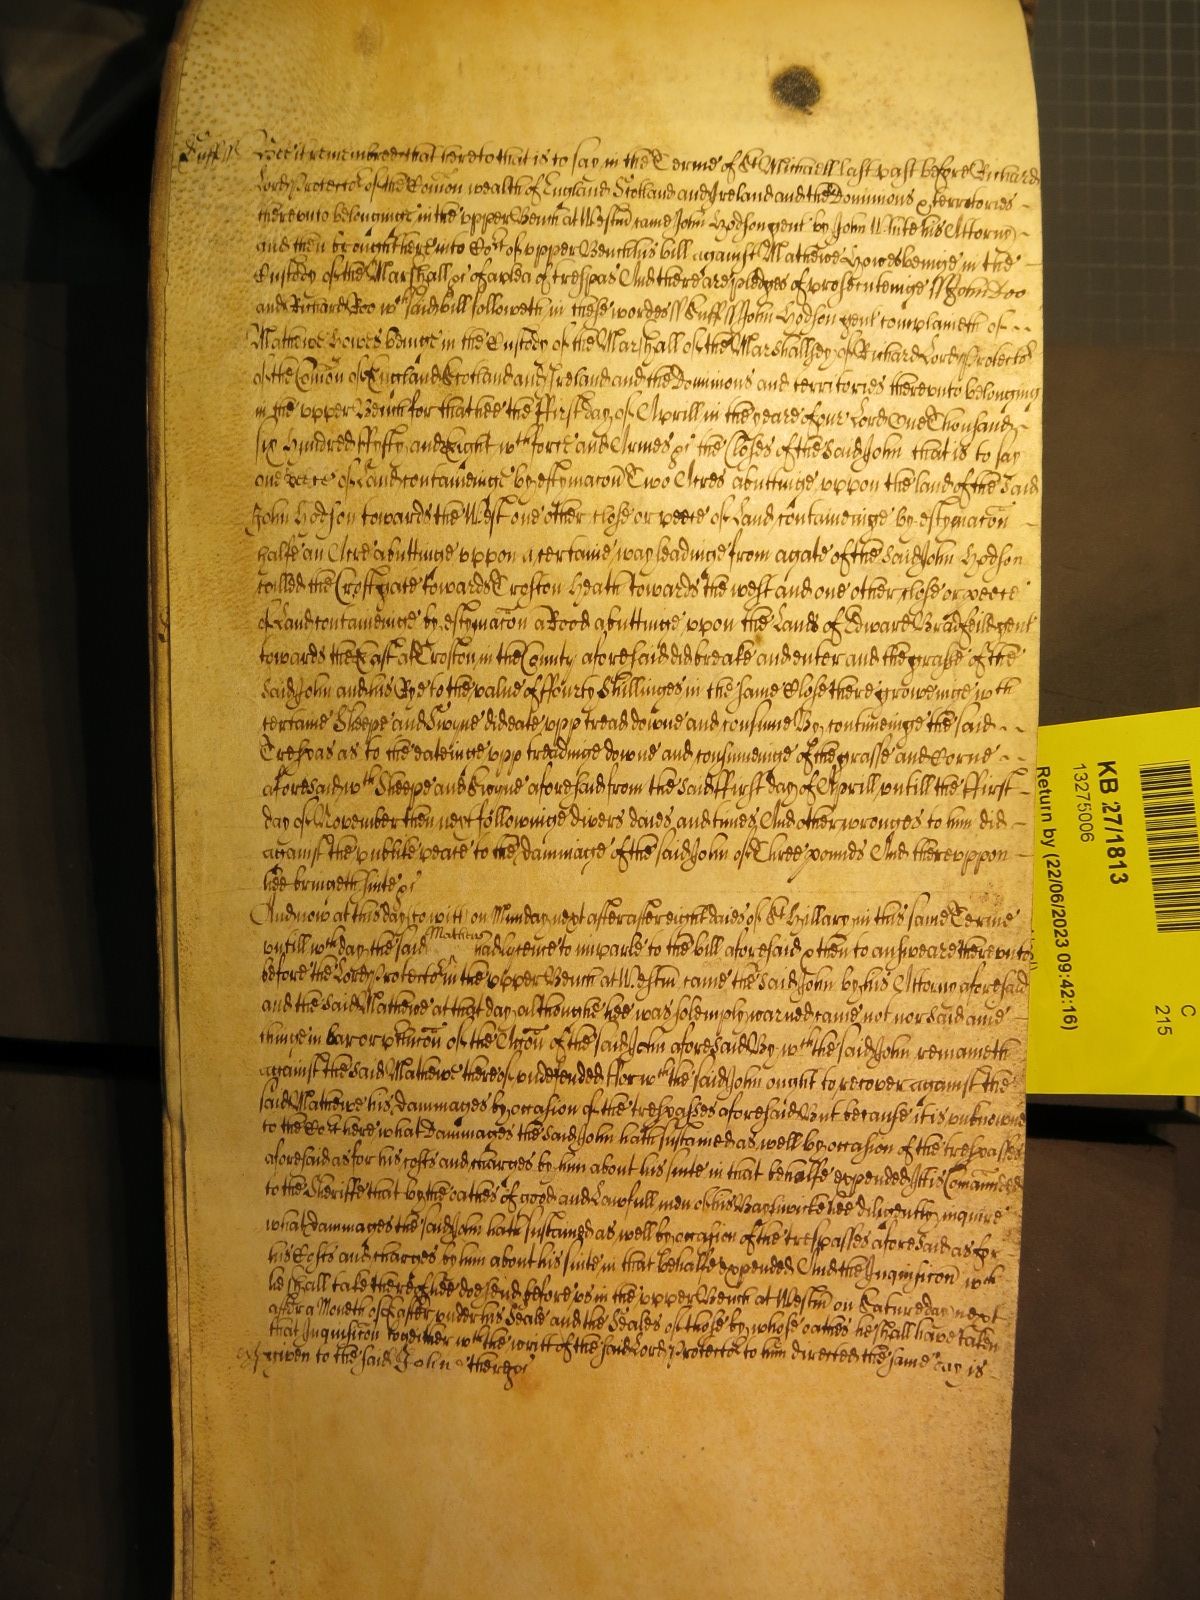 Suff ss Bee it remembred that heretofore that is to say in the Terme of St Michaell last past before Richard
Lord Protector of the Comon wealth of England Scotland and Ireland and the Dominions & territories
thereunto belonginge in the upper Bench at Westm came John Hodson gent by John White his Attorny
and then brought here into Cort of upper Bench his bill against Mathewe Howes beinge in the
Custody of the Marshall &c of a plea of trespas And there are pledges of prosecuteinge ss John Doo
and Richard Roo wch said bill followeth in these wordes ss Suff ss John Hodson gent complaineth of
Mathewe Howes beinge in the Custody of the Marshall of the Marshallsey of Richard Lord Protector
of the Comon of England Scotland and Ireland and the Dominions and territories thereunto belonging
in the upper Bench for that hee the ffirst day of Aprill in the yeare of our Lord One Thousand
six hundred ffifty and Eight wth force and Armes &c the Closes of the said John that is to say
one peece of Land conteineinge by estymacon Two Acres abuttinge uppon the land of the said
John Hodson towards the West one other close or peece of Land conteineinge by estymacon
halfe an Acre abuttinge uppon a certaine way leadinge from a gate of the said John Hodson
called the Croft gate towards Troston Heath towards the west and one other close or peece
of Land conteineinge by estymacon a Rood abuttinge uppon the Lands of Edward Bradfeild gent
towards the East at Troston in the County aforesaid did breake and enter and the grasse of the
said John and his Rye to the value of ffourty Shillinges in the same Close there groweinge wth
certaine Sheepe and Swyne did eate upp tread downe and consume By continueinge the said
Trespas as to the eateinge upp treadinge downe and consumeinge of the grasse and Corne
aforesaid wth Sheepe and Swyne aforesaid from the said ffirst day of Aprill untill the ffirst
day of November then next followinge divers daies and times And other wronges to him did
against the publike peace to the dammage of the said John of Three pounds And thereuppon
hee bringeth suite &c
And now at this day (to witt) on Munday next after eight daies of St Hillary in this same Terme
untill wch day the said Mathew had licence to imparle to the bill aforesaid & then to answeare thereunto &c
before the Lord Protector in the upper Bench at Westm came the said John by his Attorny aforesaid
and the said Mathewe at that day although hee was solemply warned came not nor said anie
thinge in bar or of the Acon of the said John aforesaid By wch the said John remaineth
against the said Mathewe thereof undefended ffor wch the said John ought to recover against the
said Mathewe his dammages by occasion of the trespasses aforesaid But because it is unknowne
to the Cort here what Dammages the said John hath sustained as well by occasion of the trespasses
aforesaid as for his costs and charges by him about his suite in that behalfe expended It is Comanded
to the Sheriffe that by the oathes of good and Lawfull men of his Baylwicke hee diligently inquire
what dammages the said John hath sustained as well by occasion of the trespasses aforesaid as for
his Costs and charges by him about his suite in that behalfe expended And the Inquisicon wch
he shall take thereof hee doe send before us in the upper Bench at Westm on Satureday next
after a Moneth of Easter under his Seale and the Seales of those by whose oathes he shall have taken
that Inquisicon together wth the writt of the said Lord Protector to him directed the same day is
given to the said John there &c
KB 27/1813
13275006
Return by (22/06/2023 09:42:16)
C
215